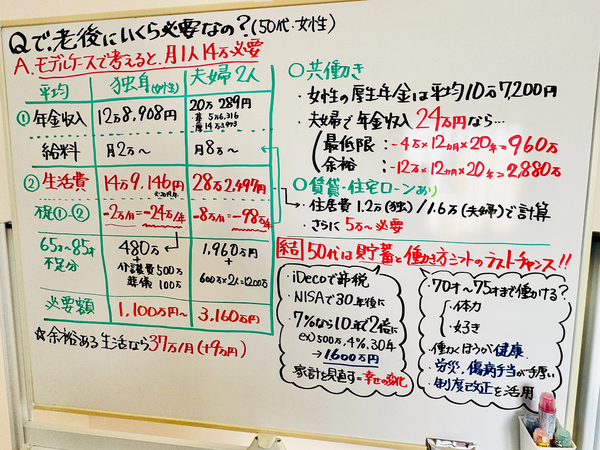 Qで、老後にいくら必要なの?(50代・女性)
A. モデルケースで考えると、月1人14万必要
平均 独身(女性) 夫婦2人
① 年金収入 12万8,908円 20万289円
・基 5万6,316
・厚 14万3,973
給料 月2万〜 月8万〜
② 生活費 14万9,146円 28万2,497円
①-② -2万/月=-24万/年 -8万/月=-98万/年
65才〜85才 不足分 480万 1,960万円
+ +
介護費500万 600万×2人=1200万
葬儀 100万
必要額 1,100万円〜 3,160万円
☆余裕ある生活なら37万/月(+9万円)
○共働き
・女性の厚生年金は平均10万7,200円
・夫婦で年金収入24万円なら…
最低限:-4万×12ヵ月×20年=960万
余裕:-12万×12ヵ月×20年=2,880万
○賃貸・住宅ローンあり
・住居費1.2万(独)/1.6万(夫婦)で計算
・さらに5万〜必要
結 50代は貯蓄と働き方シフトのラストチャンス!!
・iDecoで節税
・NISAで30年後に
・7%なら10年で2倍に
ex)500万,4%,30年
→1600万円
家計を見直す=幸せの強化
・70才〜75才まで働ける?
・体力
・好き
・働くほうが健康
・労災、傷病手当が手厚い
・制度改正を活用